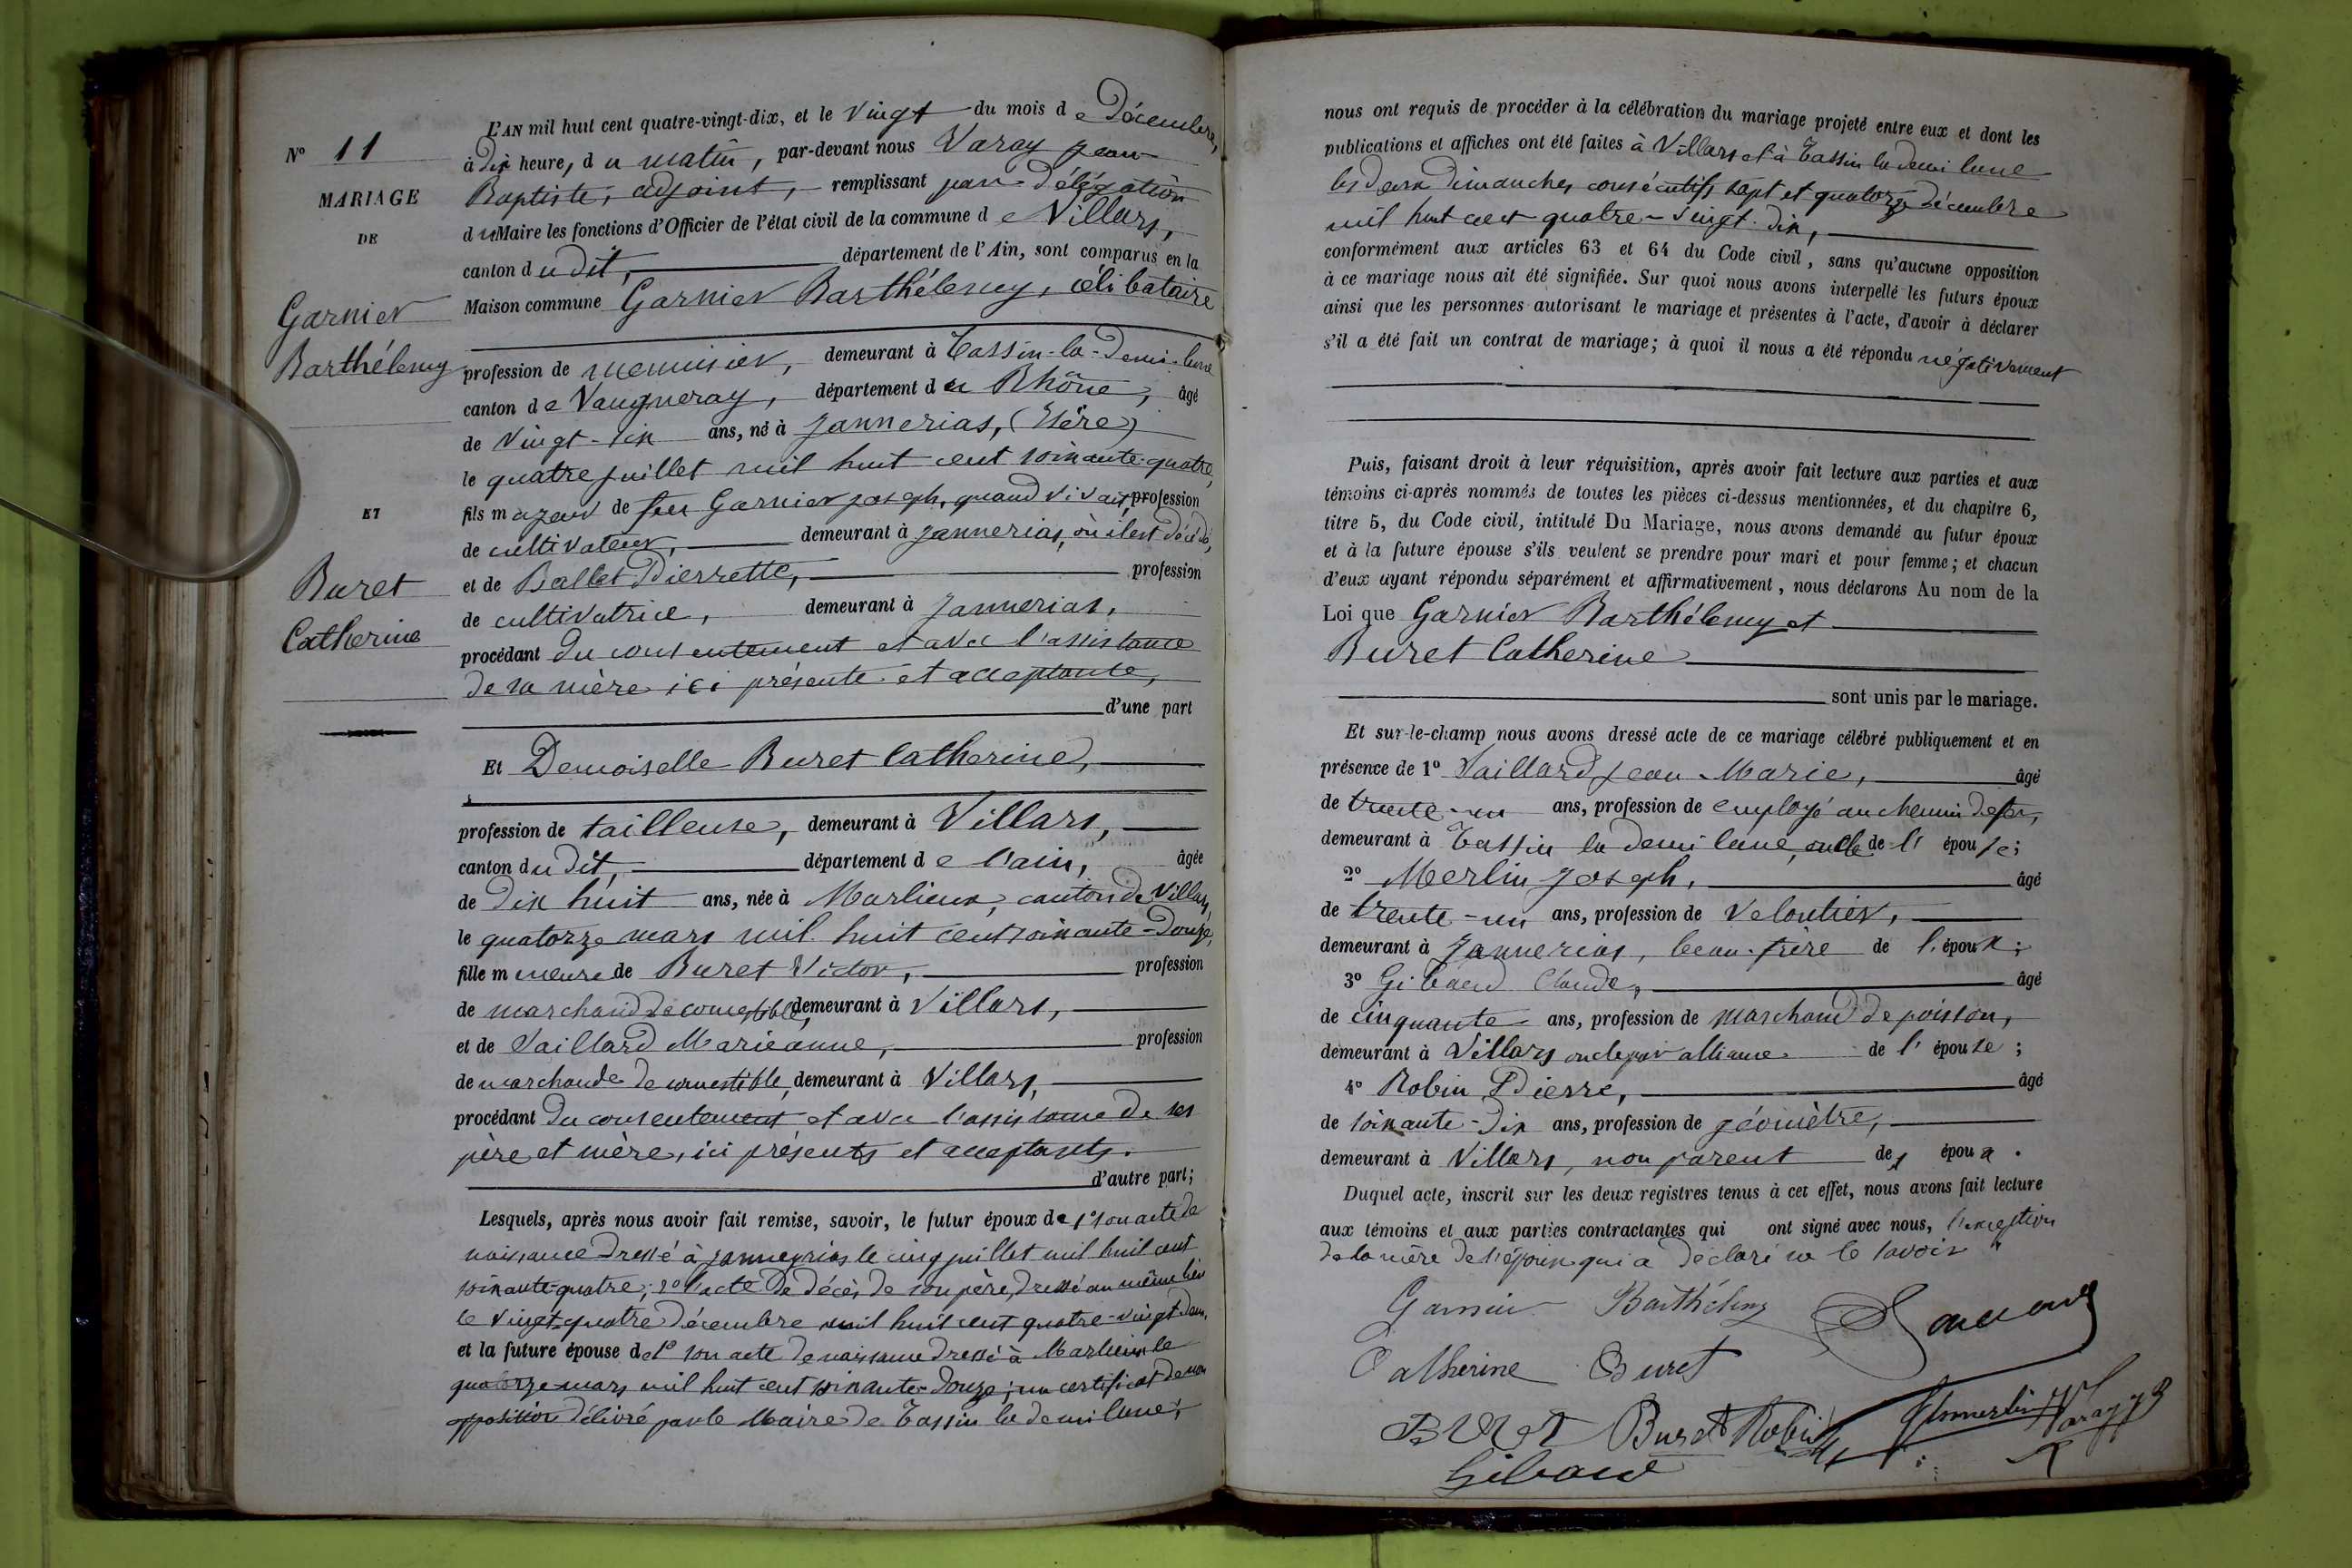 N° 11
MARIAGE
DE
Garnier
Barthélemy
ET
Buret
Catherine
L'AN mil huit cent quatre-vingt-dix, et le vingt du mois de Décembre,
à dix heure, du matin, par-devant nous Varay Jean
Baptiste, adjoint, remplissant par délégation
du Maire les fonctions d'Officier de l'état civil de la commune de Villars,
canton dudit, département de l'Ain, sont comparus en la
Maison commune Garnier Barthélemy, célibataire
profession de menuisier, demeurant à Tassin-la-Demi-lune
canton de Vaugneray, département du Rhône, âgé
de vingt-six ans, né à Jannerias, (Isère)
le quatre juillet mil huit cent soixante-quatre,
fils majeur de feu Garnier Joseph, quand vivait, profession
de cultivateur, demeurant à Jannerias, où il est décédé,
et de Ballet Pierrette, profession
de cultivatrice, demeurant à Jannerias,
procédant du consentement et avec l'assistance
de sa mère ici présente et acceptante,
d'une part
Et Demoiselle Buret Catherine,
profession de tailleuse, demeurant à Villars,
canton dudit, département de l'ain, âgée
de dix huit ans, née à Marlieux, canton de Villars,
le quatorze mars mil huit cent soixante-douze,
fille mineure de Buret Victor, profession
de marchand de comestible, demeurant à Villars,
et de Vaillard Marieanne, profession
de marchande de comestible, demeurant à Villars,
procédant du consentement et avec l'assistance de ses
père et mère, ici présents et acceptants.
d'autre part;
Lesquels, après nous avoir fait remise, savoir, le futur époux de 1° son acte de
naissance dressé à Janneyrias le cinq juillet mil huit cent
soixante-quatre; 2° l'acte de décès de son père, dressé au même lieu
le vingt-quatre décembre mil huit cent quatre-vingt-deux,
et la future épouse de 1° son acte de naissance dressé à Marlieux le
quatorze mars mil huit cent soixante-douze; un certificat de non
opposition délivré par le Maire de Tassin la demi lune;
nous ont requis de procéder à la célébration du mariage projeté entre eux et dont les
publications et affiches ont été faites à Villars et à Tassin la demi lune
les deux dimanches consécutifs sept et quatorze décembre
mil huit cent quatre-vingt-dix,
conformément aux articles 63 et 64 du Code civil, sans qu'aucune opposition
à ce mariage nous ait été signifiée. Sur quoi nous avons interpellé les futurs époux
ainsi que les personnes autorisant le mariage et présentes à l'acte, d'avoir à déclarer
s'il a été fait un contrat de mariage; à quoi il nous a été répondu négativement
Puis, faisant droit à leur réquisition, après avoir fait lecture aux parties et aux
témoins ci-après nommés de toutes les pièces ci-dessus mentionnées, et du chapitre 6,
titre 5, du Code civil, intitulé Du Mariage, nous avons demandé au futur époux
et à la future épouse s'ils veulent se prendre pour mari et pour femme; et chacun
d'eux ayant répondu séparément et affirmativement, nous déclarons Au nom de la
Loi que Garnier Barthélemy et
Buret Catherine
sont unis par le mariage.
Et sur-le-champ nous avons dressé acte de ce mariage célébré publiquement et en
présence de 1° Vaillard Jean-Marie, âgé
de trente-un ans, profession de employé au chemin de fer,
demeurant à Tassin la demi lune, oncle de l'épouse;
2° Merlin Joseph, âgé
de trente-un ans, profession de veloutier,
demeurant à Jannerias, beau-frère de l'époux;
3° Gibaud Claude, âgé
de cinquante ans, profession de marchand de poisson,
demeurant à Villars oncle par alliance de l'épouse;
4° Robin Pierre, âgé
de soixante-dix ans, profession de géomètre,
demeurant à Villars, non parent des époux.
Duquel acte, inscrit sur les deux registres tenus à cet effet, nous avons fait lecture
aux témoins et aux parties contractantes qui ont signé avec nous, l'exception
de la mère de l'époux qui a déclaré ne le savoir
Garnier Barthélemy
Catherine Buret
Buret Buret Robin Merlin Varay JB
Gibaud